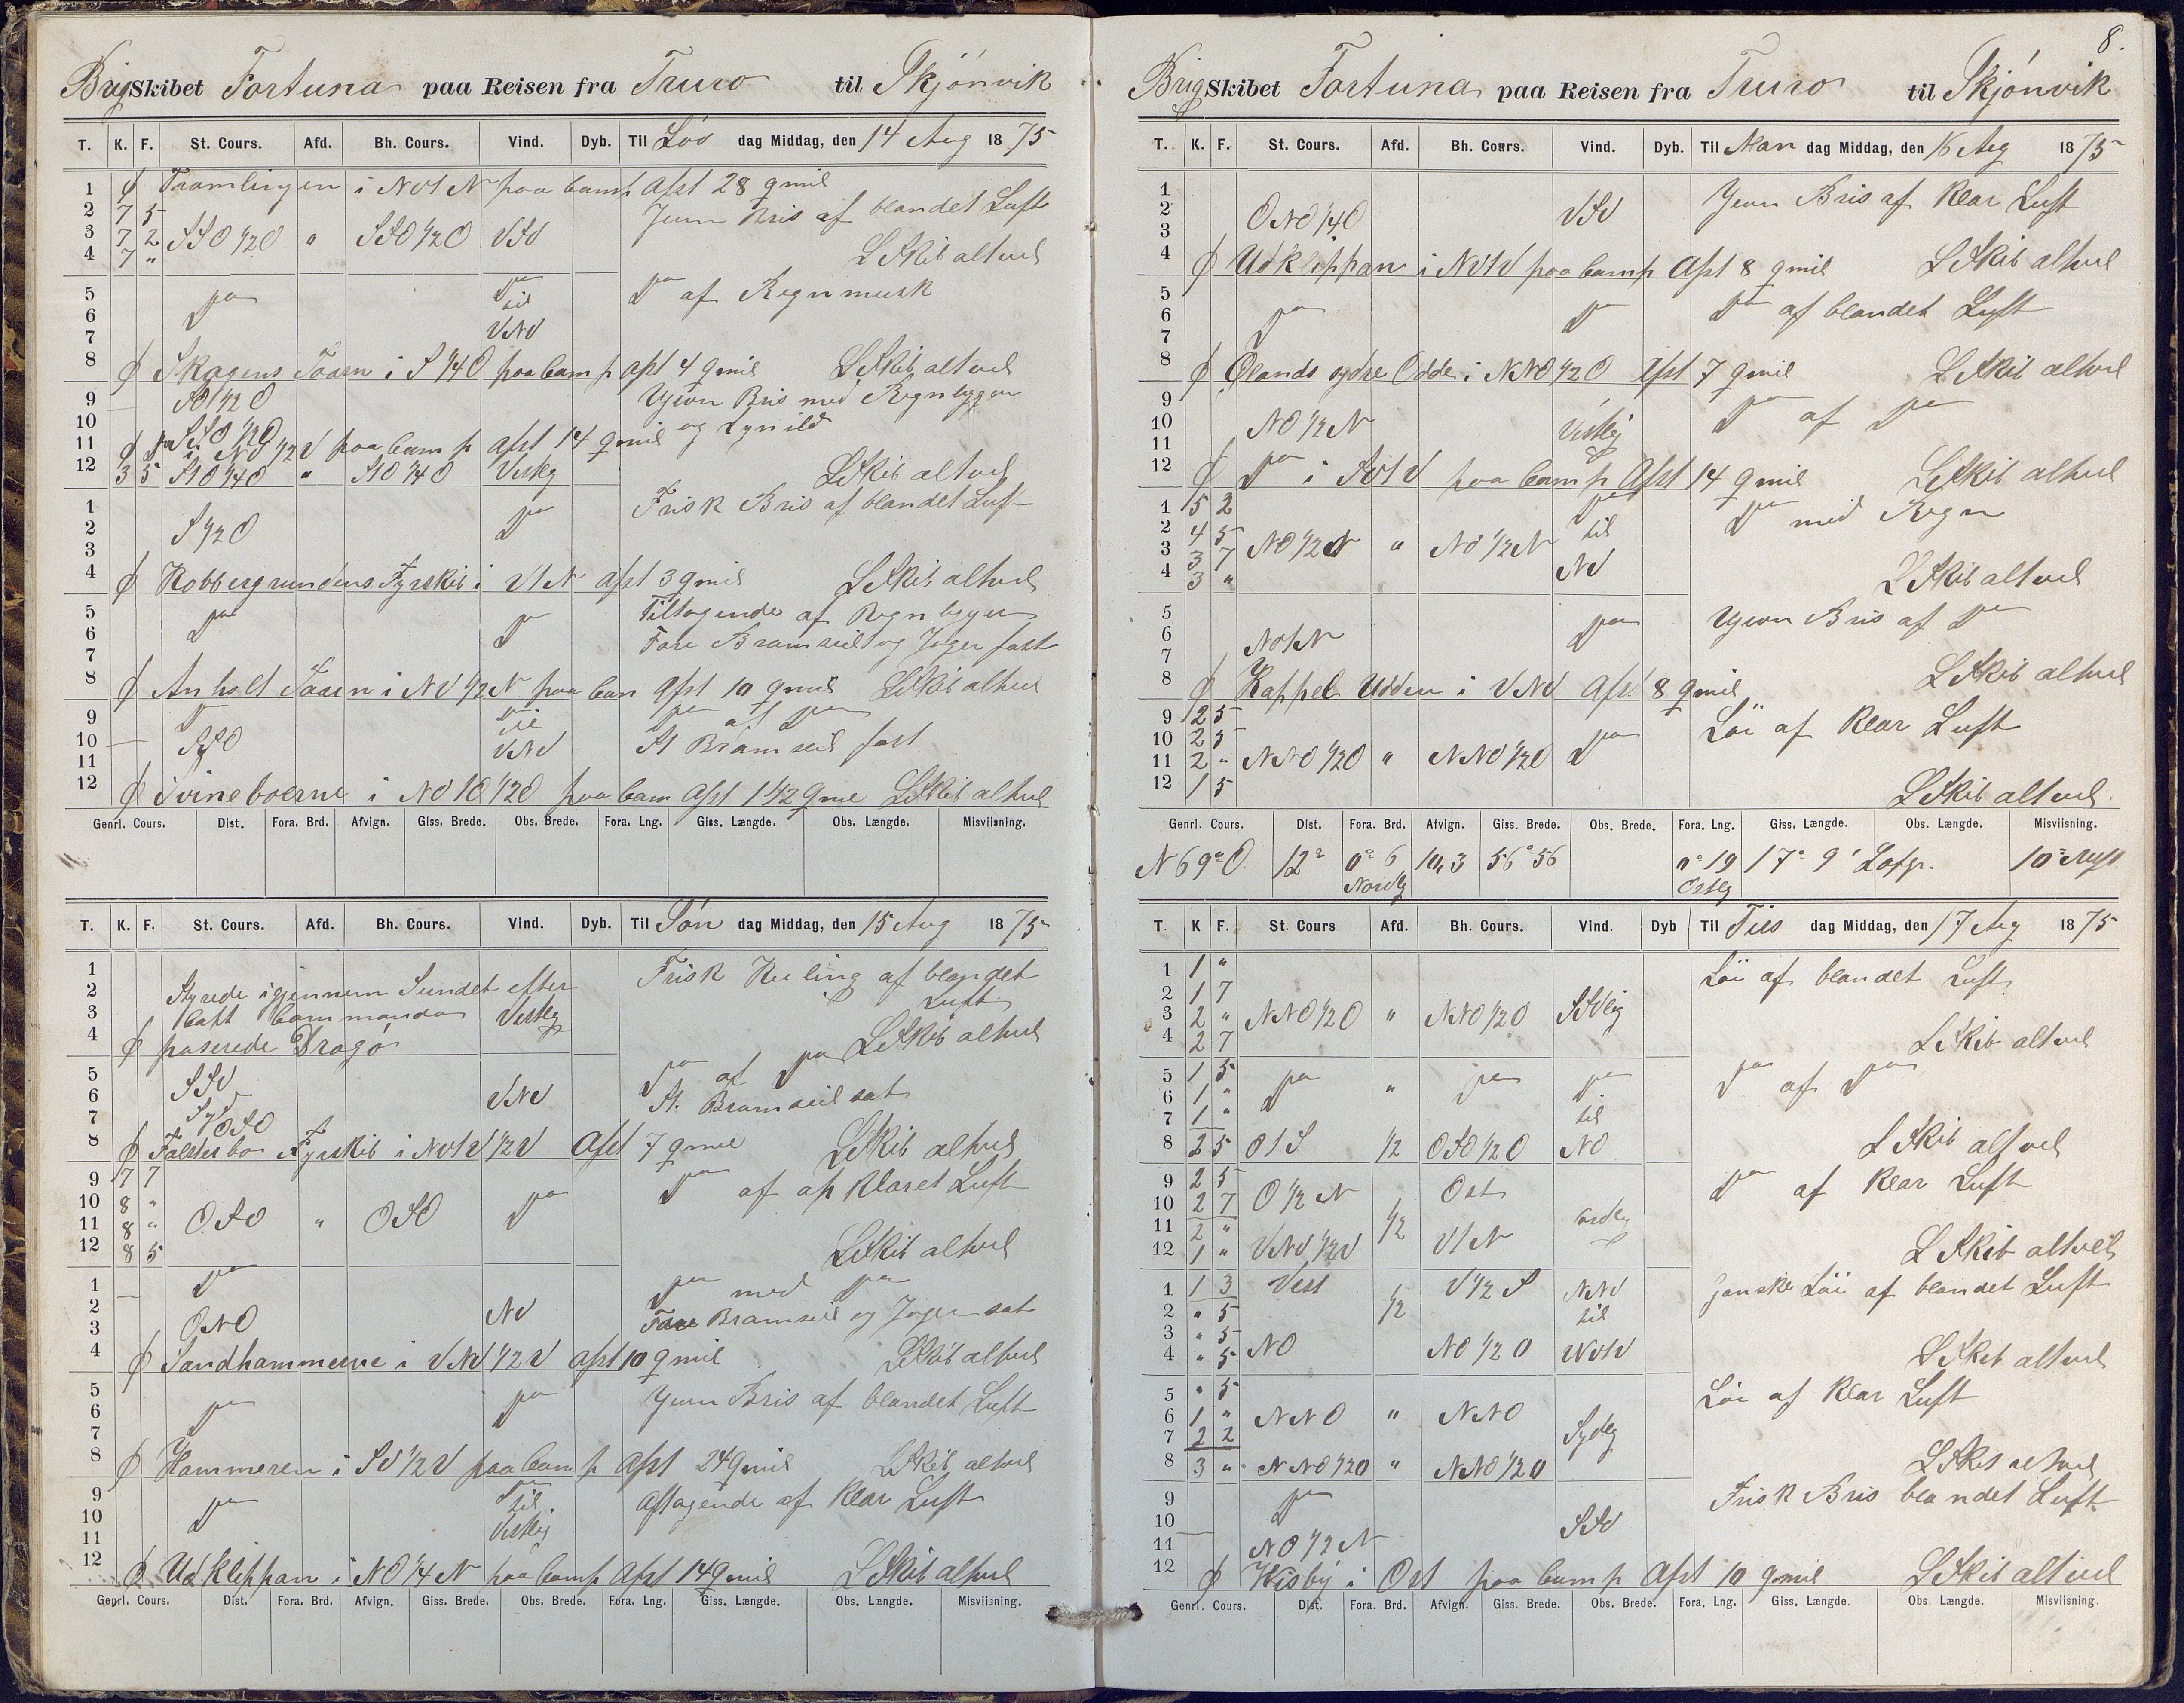 BrigSkibet Fortuna paa Reisen fra Truro til Skjönvik
T. K. F. St. Cours. Afd. Bh. Cours. Vind. Dyb. Til Löv dag Middag, den 14 Aug 1875
1 ϕ Tramlingen i NO1N paa Comp Afst 28 qmil
2 7 5 Jevn Bris af blandet Luft
3 7 2 SSO 1/2 O " SSO 1/2 O VSV
4 7 " L Skib altvel
5 Do Do Do af Regnmusk
6 til
7 VNV
8 ϕ Skagens Taarn i S 1/4 O paa Comp afst 4 qmil L Skib altvel
9 SO 1/2 O Ujevn Bris med Regnbyger
10 SSO 1/2 O og Lynild
11 ϕ Do i NO 1/2 V paa Comp afst 14 qmil
12 3 5 S1O 1/4 O " S1O 1/4 O Vestlig L Skib altvel
1 Frisk Bris af blandet Luft
2 S 1/2 O Do
3
4 ϕ Kobbergrundens Fyrskib i V1N afst 3 qmil L Skib altvel
5 Do Tiltagende af Regnbyger
6 Do Fore Bramseil og Jager fast
7
8 ϕ Anholt Taarn i NV 1/2 N paa Com Afst 10 qmil L Skib altvel
9 Do til Do af Do
10 SSO VNV St Bramseil fast
11
12 ϕ Svineboerne i NO1O 1/2 O paa Com Afst 1 1/2 qmil L Skib altvel
Genrl. Cours. Dist. Fora. Brd. Afvign. Giss. Brede. Obs. Brede. Fora. Lng. Giss. Længde. Obs. Længde. Misviisning.
T. K. F. St. Cours. Afd. Bh. Cours. Vind. Dyb. Til Sön dag Middag, den 15 Aug 1875
1 Frisk Kuling af blandet
2 Styrede igjennem Sundet efter Luft
3 Capt Commando Vestlig
4 ϕ paserede Dragö L Skib altvel
5 SSV Do af Do
6 Syd VNV St. Bramseil sat
7 OSO
8 ϕ Falsterbo Fyrskib i NO1V 1/2 V Afst 7 qmil L Skib altvel
9 7 7 Do af opklaret Luft
10 8 " Do
11 8 " OSO " OSO
12 8 5 L Skib altvel
1 Do Do med Do
2 NV Fore Bramseil og Jager sat
3 ONO
4 ϕ Sandhammerne i VNV 1/2 V afst 10 qmil L Skib altvel
5 Do Jevn Bris af blandet Luft
6 Do
7
8 ϕ Hammeren i SV 1/2 V paa Comp Afst 24 qmil L Skib altvel
9 Do Do Aftagende af klar Luft
10 til
11 Vestlig
12 ϕ Udklippan i NO 1/4 N paa Comp Afst 14 qmil L Skib altvel
Genrl. Cours. Dist. Fora. Brd. Afvign. Giss. Brede. Obs. Brede. Fora. Lng. Giss. Længde. Obs. Længde. Misviisning.
8.
BrigSkibet Fortuna paa Reisen fra Truro til Skjönvik
T. K. F. St. Cours. Afd. Bh. Cours. Vind. Dyb. Til Man dag Middag, den 16 Aug 1875
1 Jevn Bris af klar Luft
2 ONO 1/4 O VSV
3
4 ϕ Udklippan i NV1V paa Comp Afst 8 qmil L Skib altvel
5 Do af blandet Luft
6 Do Do
7
8 ϕ Ølands sydre Odde i NNO 1/2 O Afst 7 qmil L Skib altvel
9 Do af Do
10 NO 1/2 N Vestlig
11
12 ϕ Do i SV1V paa Comp Afst 14 qmil L Skib altvel
1 5 2 Do Do med Regn
2 4 5 til
3 3 7 NO 1/2 N " NO 1/2 N NV
4 3 " L Skib altvel
5 Ujevn Bris af Do
6 Do
7 NO1N
8 ϕ Kappel Udden i VNV Afst 8 qmil L Skib altvel
9 2 5 Löi af klar Luft
10 2 5 Do
11 2 " NNO 1/2 O " NNO 1/2 O
12 1 5 L Skib altvel.
Genrl. Cours. Dist. Fora. Brd. Afvign. Giss. Brede. Obs. Brede. Fora. Lng. Giss. Længde. Obs. Længde. Misviisning.
N 69° O. 12 0° 6 Nordlig 10,3 56° 56 0° 19 Östlig 17° 9'
T. K F. St. Cours Afd. Bh. Cours. Vind. Dyb Til Tirs dag Middag, den 17 Aug 1875
1 1 " Löi af blandet Luft
2 1 7
3 2 " NNO 1/2 O " NNO 1/2 O
4 2 7 L Skib altvel
5 1 5 Do " Do Do Do af Do
6 1 "
7 1 " til
8 2 5 O1S 1/2 OSO 1/2 O NO L Skib altvel
9 2 5 Ost Do af klar Luft
10 2 7 O 1/2 N 1/2
11 2 "
12 1 " VNV 1/2 V V1N L Skib altvel
1 1 3 Vest 1/2 V 1/2 S NNV Ganske Löi af blandet Luft
2 " 5 til
3 " 5 NO NO 1/2 O
4 " 5 L Skib altvel
5 " 5 Löi af klar Luft
6 1 " NNO " NNO
7 2 2 Sydlig
8 3 " NNO 1/2 O " NNO 1/2 O L Skib altvel
9 Do Frisk Bris blandet Luft
10 SSV
11 NO 1/2 N
12 ϕ Wisby i Ost paa Comp Afst 10 qmil L Skib altvel
Genrl. Cours. Dist. Fora. Brd. Afvign. Giss. Brede. Obs. Brede. Fora. Lng. Giss. Længde. Obs. Længde. Misviisning.